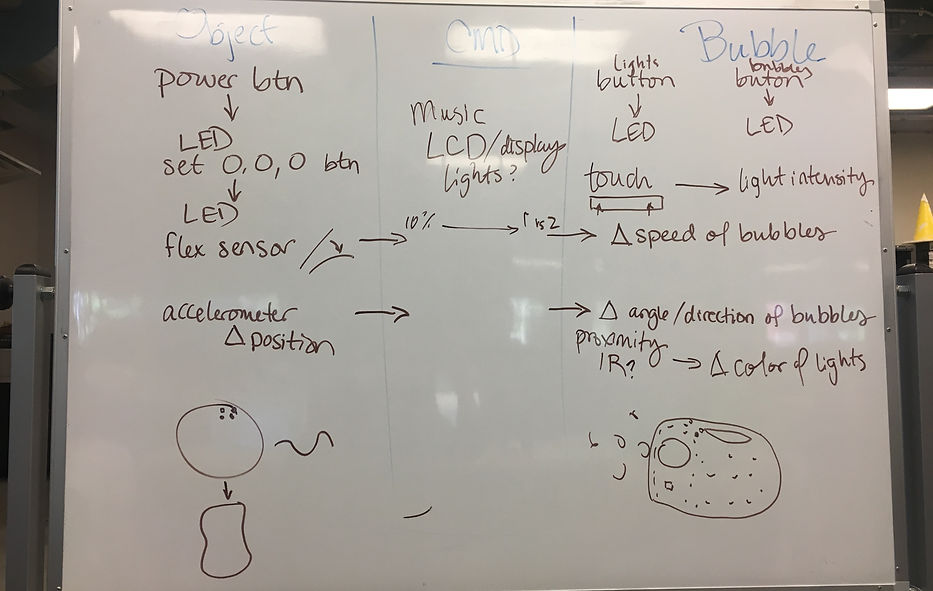 Object
power btn
LED
set 0,0,0 btn
LED
flex sensor
accelerometer
Δ position
CMD
Music
LCD/display
lights?
10%
Bubble
Lights
button
LED
bubbles
buton
LED
touch → light intensity
Δ speed of bubbles
Δ angle/direction of bubbles
proximity
IR? → Δ color of lights